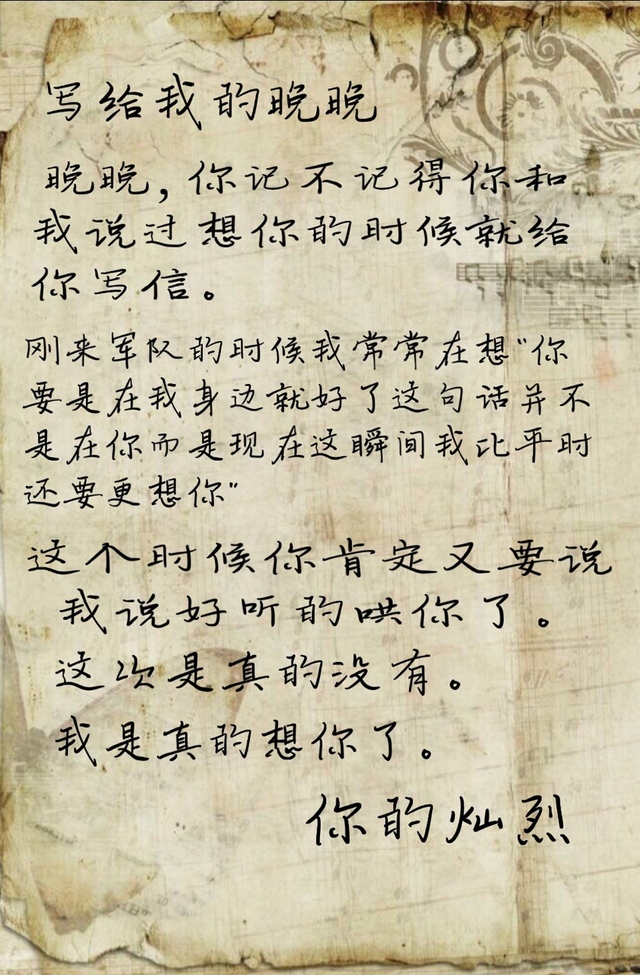 写给我的晚晚
晚晚，你记不记得你和
我说过想你的时候就给
你写信。
刚来军队的时候我常常在想"你
要是在我身边就好了这句话并不
是在你而是现在这瞬间我比平时
还要更想你"
这个时候你肯定又要说
我说好听的哄你了。
这次是真的没有。
我是真的想你了。
你的灿烈